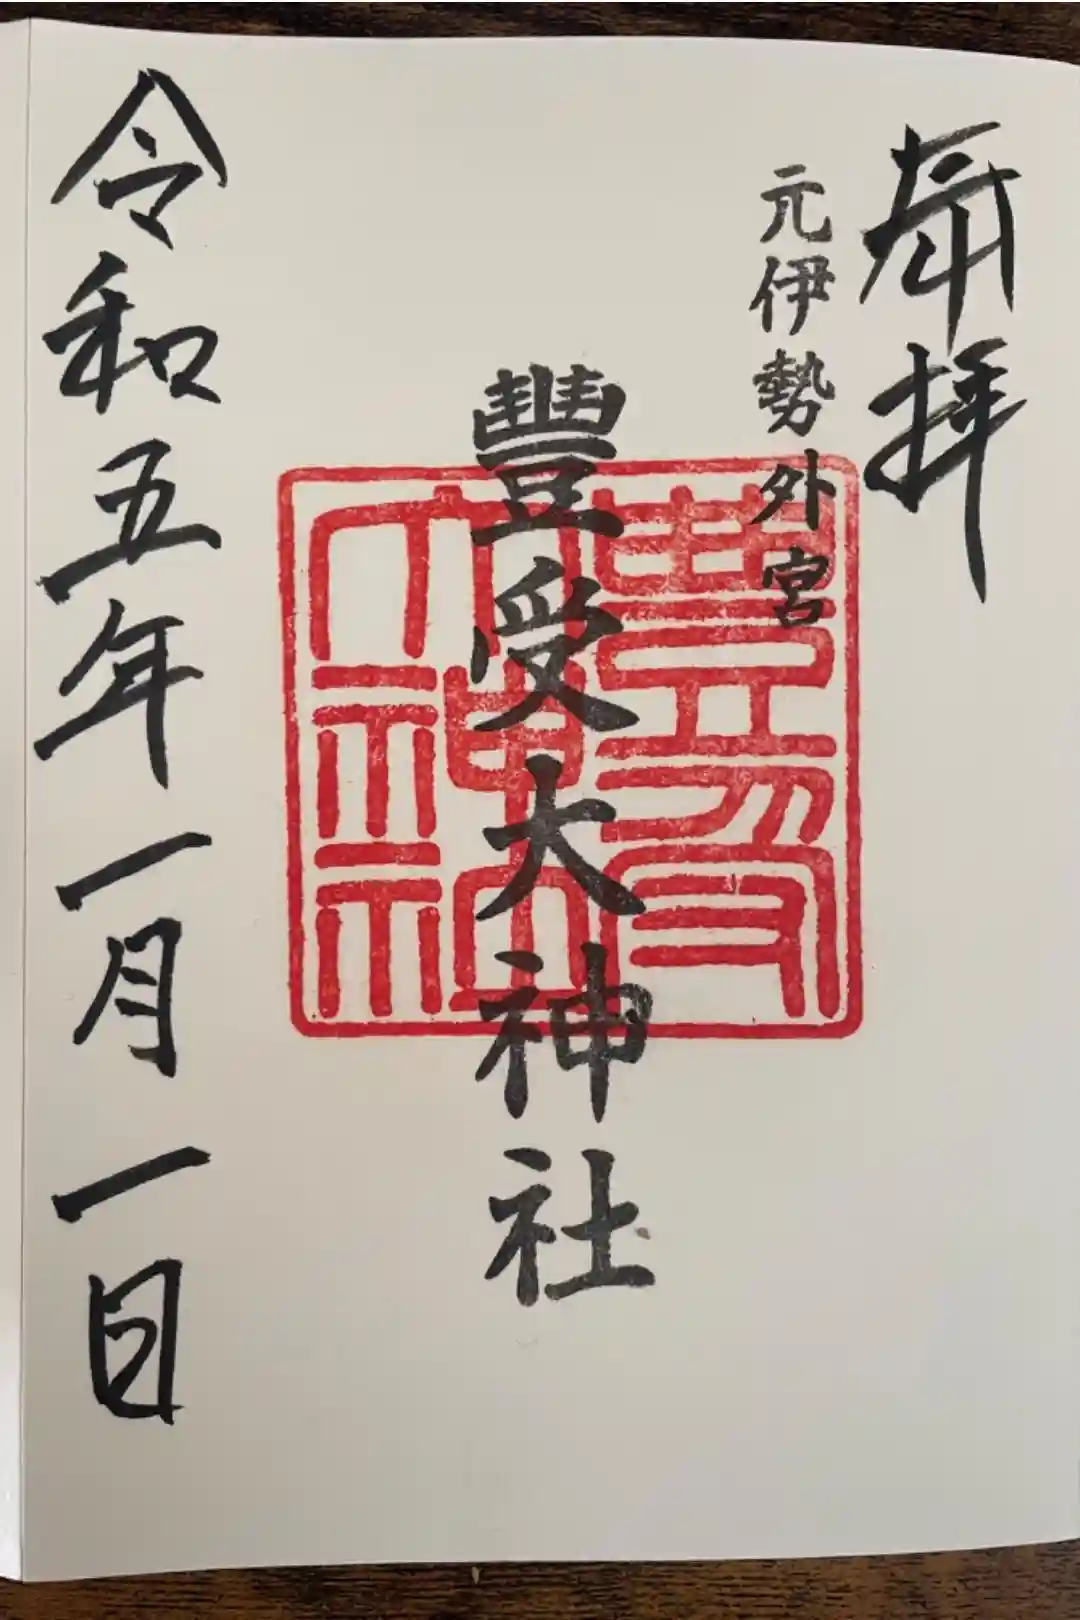 奉拝
元伊勢外宮
豐受大神社
豐受大神社
令和五年一月一日